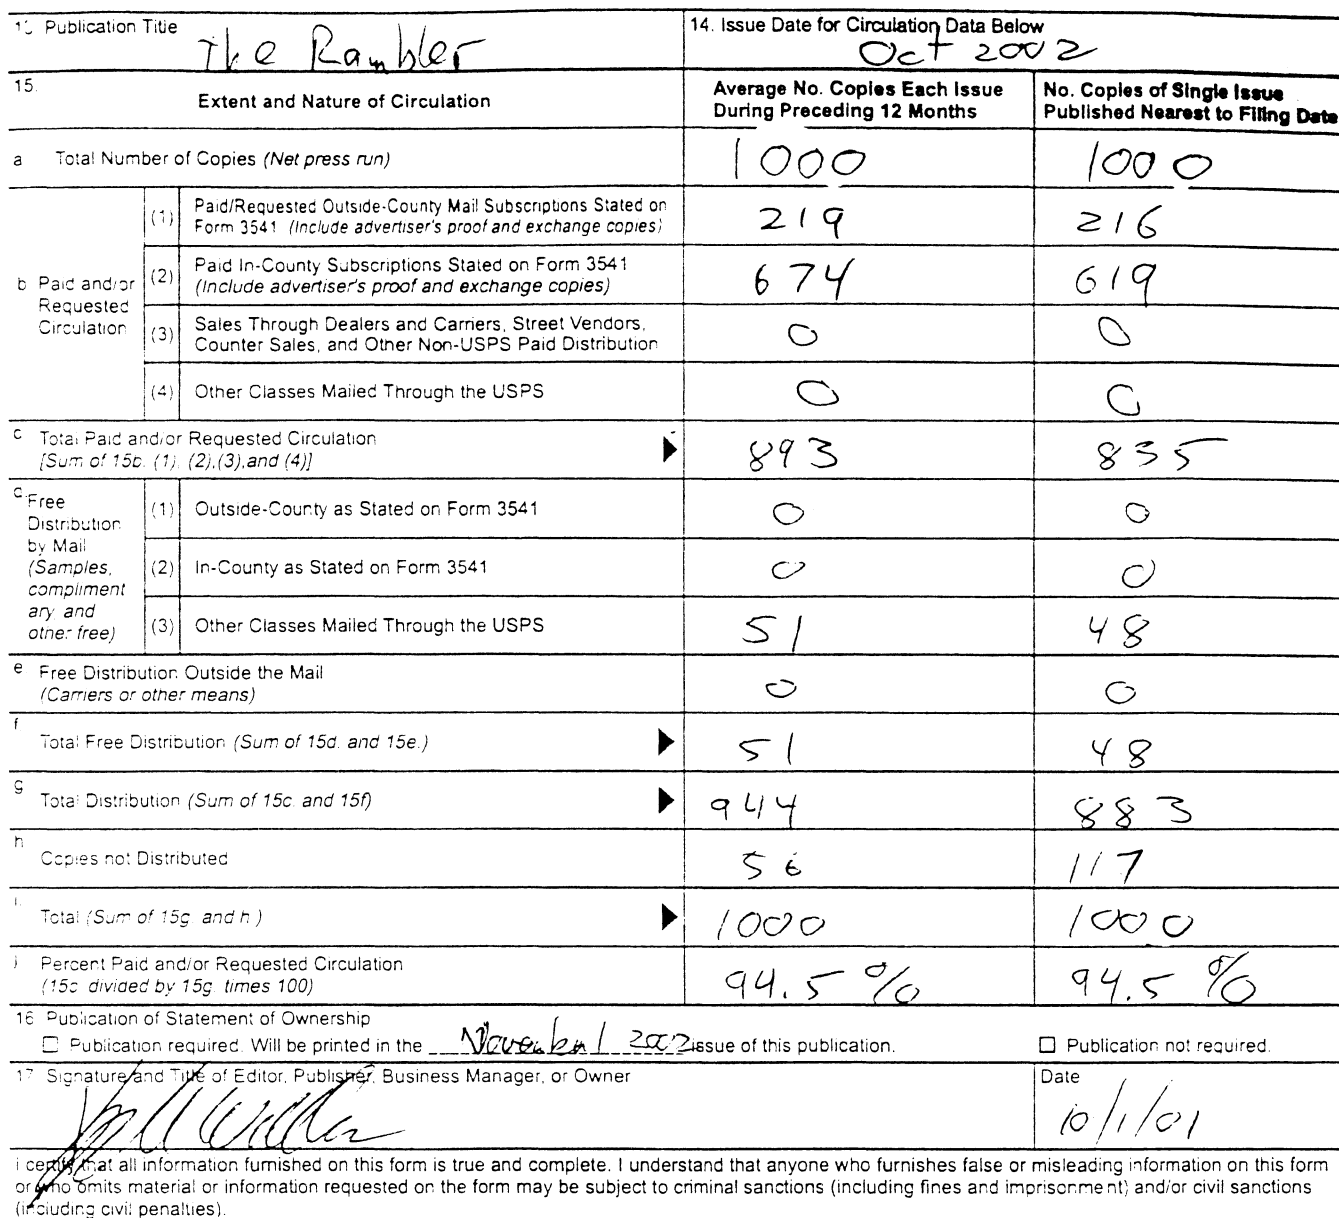 13. Publication Title
The Rambler
14. Issue Date for Circulation Data Below
Oct 2002
15.
Extent and Nature of Circulation
Average No. Copies Each Issue During Preceding 12 Months
No. Copies of Single Issue Published Nearest to Filing Date
a Total Number of Copies (Net press run) 1000 1000
b Paid and/or Requested Circulation
(1) Paid/Requested Outside-County Mail Subscriptions Stated on Form 3541 (Include advertiser's proof and exchange copies) 219 216
(2) Paid In-County Subscriptions Stated on Form 3541 (Include advertiser's proof and exchange copies) 674 619
(3) Sales Through Dealers and Carriers, Street Vendors, Counter Sales, and Other Non-USPS Paid Distribution 0 0
(4) Other Classes Mailed Through the USPS 0 0
c Total Paid and/or Requested Circulation [Sum of 15b. (1), (2),(3),and (4)] 893 835
d Free Distribution by Mail (Samples, compliment ary, and other free)
(1) Outside-County as Stated on Form 3541 0 0
(2) In-County as Stated on Form 3541 0 0
(3) Other Classes Mailed Through the USPS 51 48
e Free Distribution Outside the Mail (Carriers or other means) 0 0
f Total Free Distribution (Sum of 15d. and 15e.) 51 48
g Total Distribution (Sum of 15c. and 15f) 944 883
h Copies not Distributed 56 117
i. Total (Sum of 15g. and h.) 1000 1000
j Percent Paid and/or Requested Circulation (15c. divided by 15g. times 100) 94.5 % 94.5 %
16 Publication of Statement of Ownership
Publication required. Will be printed in the November 1 2002 issue of this publication.
Publication not required.
17 Signature and Title of Editor, Publisher, Business Manager, or Owner
Date
10/1/01
I certify that all information furnished on this form is true and complete. I understand that anyone who furnishes false or misleading information on this form
or who omits material or information requested on the form may be subject to criminal sanctions (including fines and imprisonment) and/or civil sanctions
(including civil penalties).